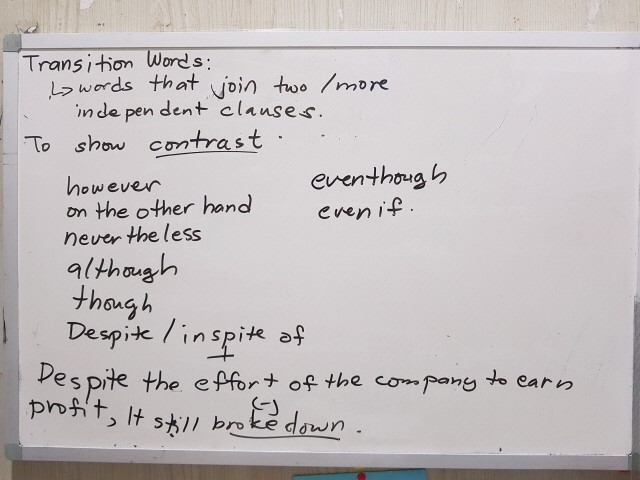 Transition Words:
↳ words that join two / more
independent clauses.
To show contrast.
however
on the other hand
nevertheless
although
though
Despite / inspite of
eventhough
even if.
+
Despite the effort of the company to earn
(-)
profit, It still broke down.